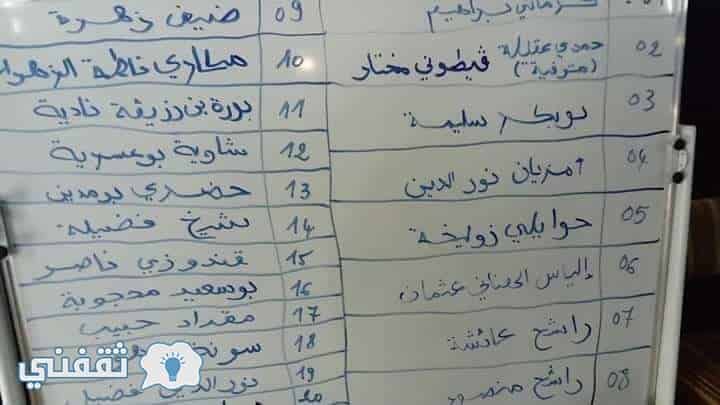 02 حمدي عقيلة (متوفية) قيطوني مختار
03 بوبكر سليمة
04 أمزيان نور الدين
05 حوايلي زوليخة
06 إلياس الحفناني عثمان
07 راشح عائشة
08 راشح منصور
09 ضيف زهرة
10 مكاوي فاطمة الزهراء
11 بورة بن رزيقة نادية
12 شاوية بوعسرية
13 حضري بومدين
14 شيخ فضيلة
15 قندوزي ناصر
16 بوسعيد محجوبة
17 مقداد حبيب
18
19 نور الدين فضيل
20
ثقفني